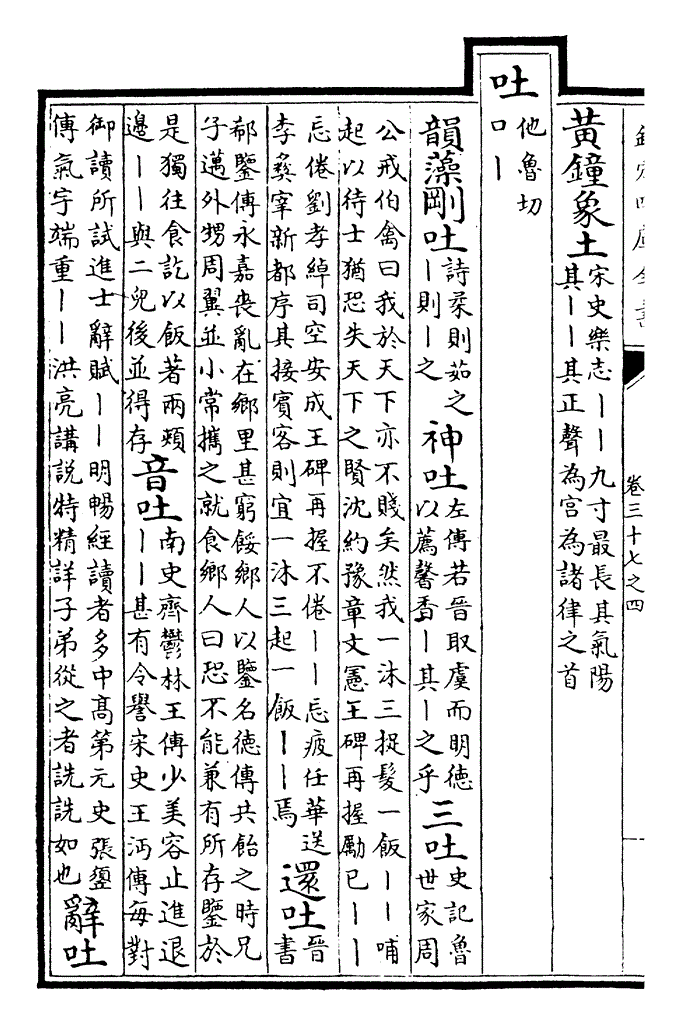 欽定四庫全書
卷三十七之四
黃鐘象土
宋史樂志丨丨九寸最長其氣陽
其丨丨其正聲為宫為諸律之首
吐
他魯切
口丨
韻藻剛吐
詩柔則茹之
丨則丨之
神吐
左傳若晉取虞而明德
以薦馨香丨其丨之乎
三吐
史記魯
世家周
公戒伯禽曰我於天下亦不賤矣然我一沐三捉髮一飯丨丨哺
起以待士猶恐失天下之賢沈約豫章文憲王碑再握勵已丨丨
忘倦劉孝綽司空安成王碑再握不倦丨丨忘疲任華送
李彛宰新都序其接賓客則宜一沐三起一飯丨丨焉
還吐
晉
書
郗鑒傳永嘉喪亂在鄉里甚窮餒鄉人以鑒名德傳共飴之時兄
子邁外甥周翼並小常攜之就食鄉人曰恐不能兼有所存鑒於
是獨往食訖以飯著兩頰
邊丨丨與二兒後並得存
音吐
南史齊鬱林王傳少美容止進退
丨丨甚有令譽宋史王沔傳每對
御讀所試進士辭賦丨丨明暢經讀者多中髙第元史張
傳氣宇端重丨丨洪亮講説特精詳子弟從之者詵詵如也
辭吐